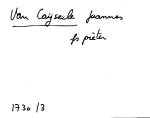 Van Cayseele Joannes
fs pieter
1730/3